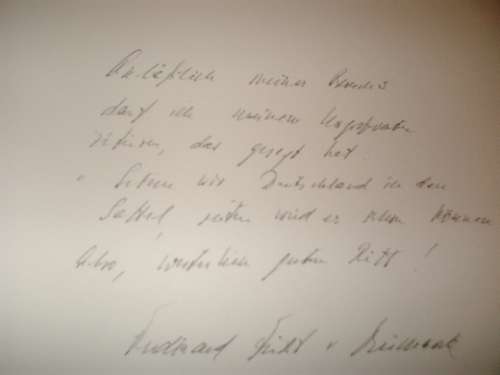 Anläßlich meines Besuchs
darf ich meinen Urgroßvater
zitieren, das gesagt hat
" Setzen wir Deutschland in den
Sattel, reiten wird es schon können
Also, weiterhin guten Ritt !
Ferdinand Fürst v Bismarck